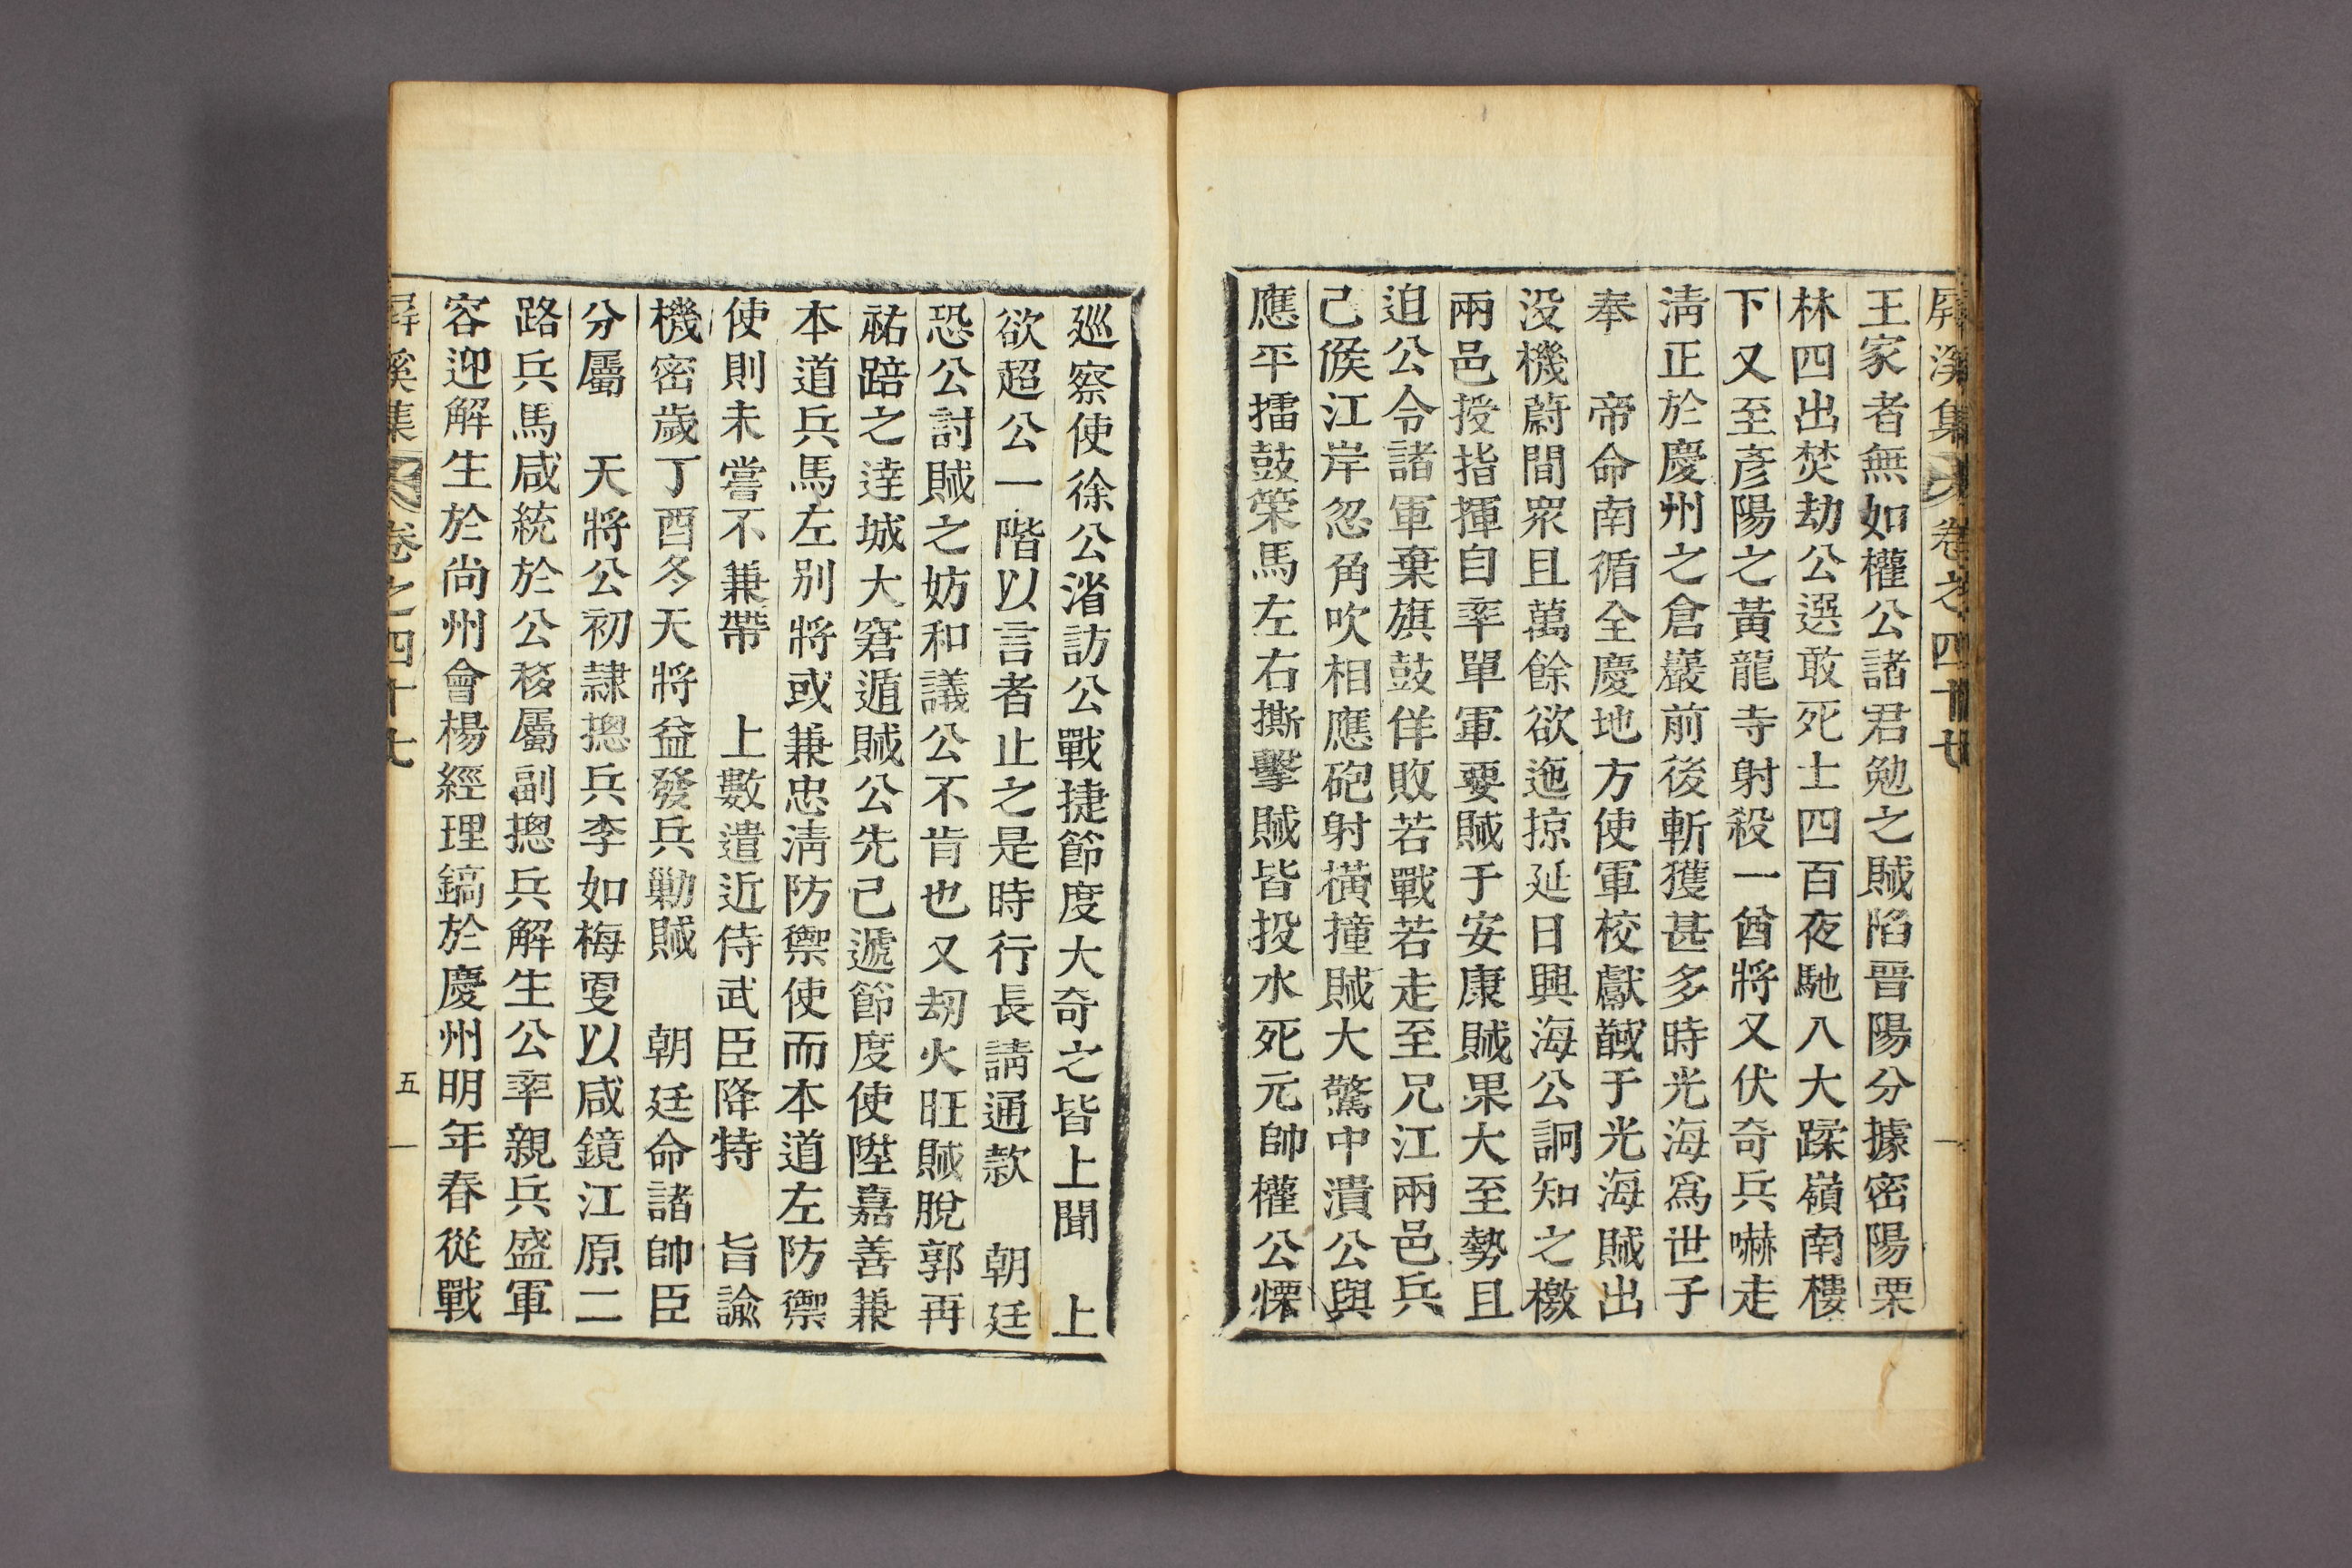 屛溪集 卷之四十七
王家者無如權公諸君勉之賊陷晋陽分據密陽栗
林四出焚劫公選敢死士四百夜馳八大蹂嶺南樓
下又至彦陽之黃龍寺射殺一酋將又伏奇兵嚇走
淸正於慶州之倉巖前後斬獲甚多時光海爲世子
奉　帝命南循全慶地方使軍校獻馘于光海賊出
没機蔚間衆且萬餘欲迤掠延日興海公詗知之檄
兩邑授指揮自率單軍要賊于安康賊果大至勢且
迫公令諸軍棄旗鼓佯敗若戰若走至兄江兩邑兵
己候江岸忽角吹相應砲射橫撞賊大驚中潰公與
應平擂鼓策馬左右撕擊賊皆投水死元帥權公慄
巡察使徐公渻訪公戰捷節度大奇之皆上聞　上
欲超公一階以言者止之是時行長請通款　朝廷
恐公討賊之妨和議公不肯也又刼火旺賊脫郭再
祐踣之達城大窘遁賊公先己遞節度使陞嘉善兼
本道兵馬左别將或兼忠淸防禦使而本道左防禦
使則未嘗不兼帶　上數遣近侍武臣降特　旨諭
機密歲丁酉冬天將益發兵勦賊　朝廷命諸帥臣
分屬　天將公初隷摠兵李如梅更以咸鏡江原二
路兵馬咸統於公移屬副摠兵解生公率親兵盛軍
容迎解生於尙州會楊經理鎬於慶州明年春從戰
屛溪集 卷之四十七 五